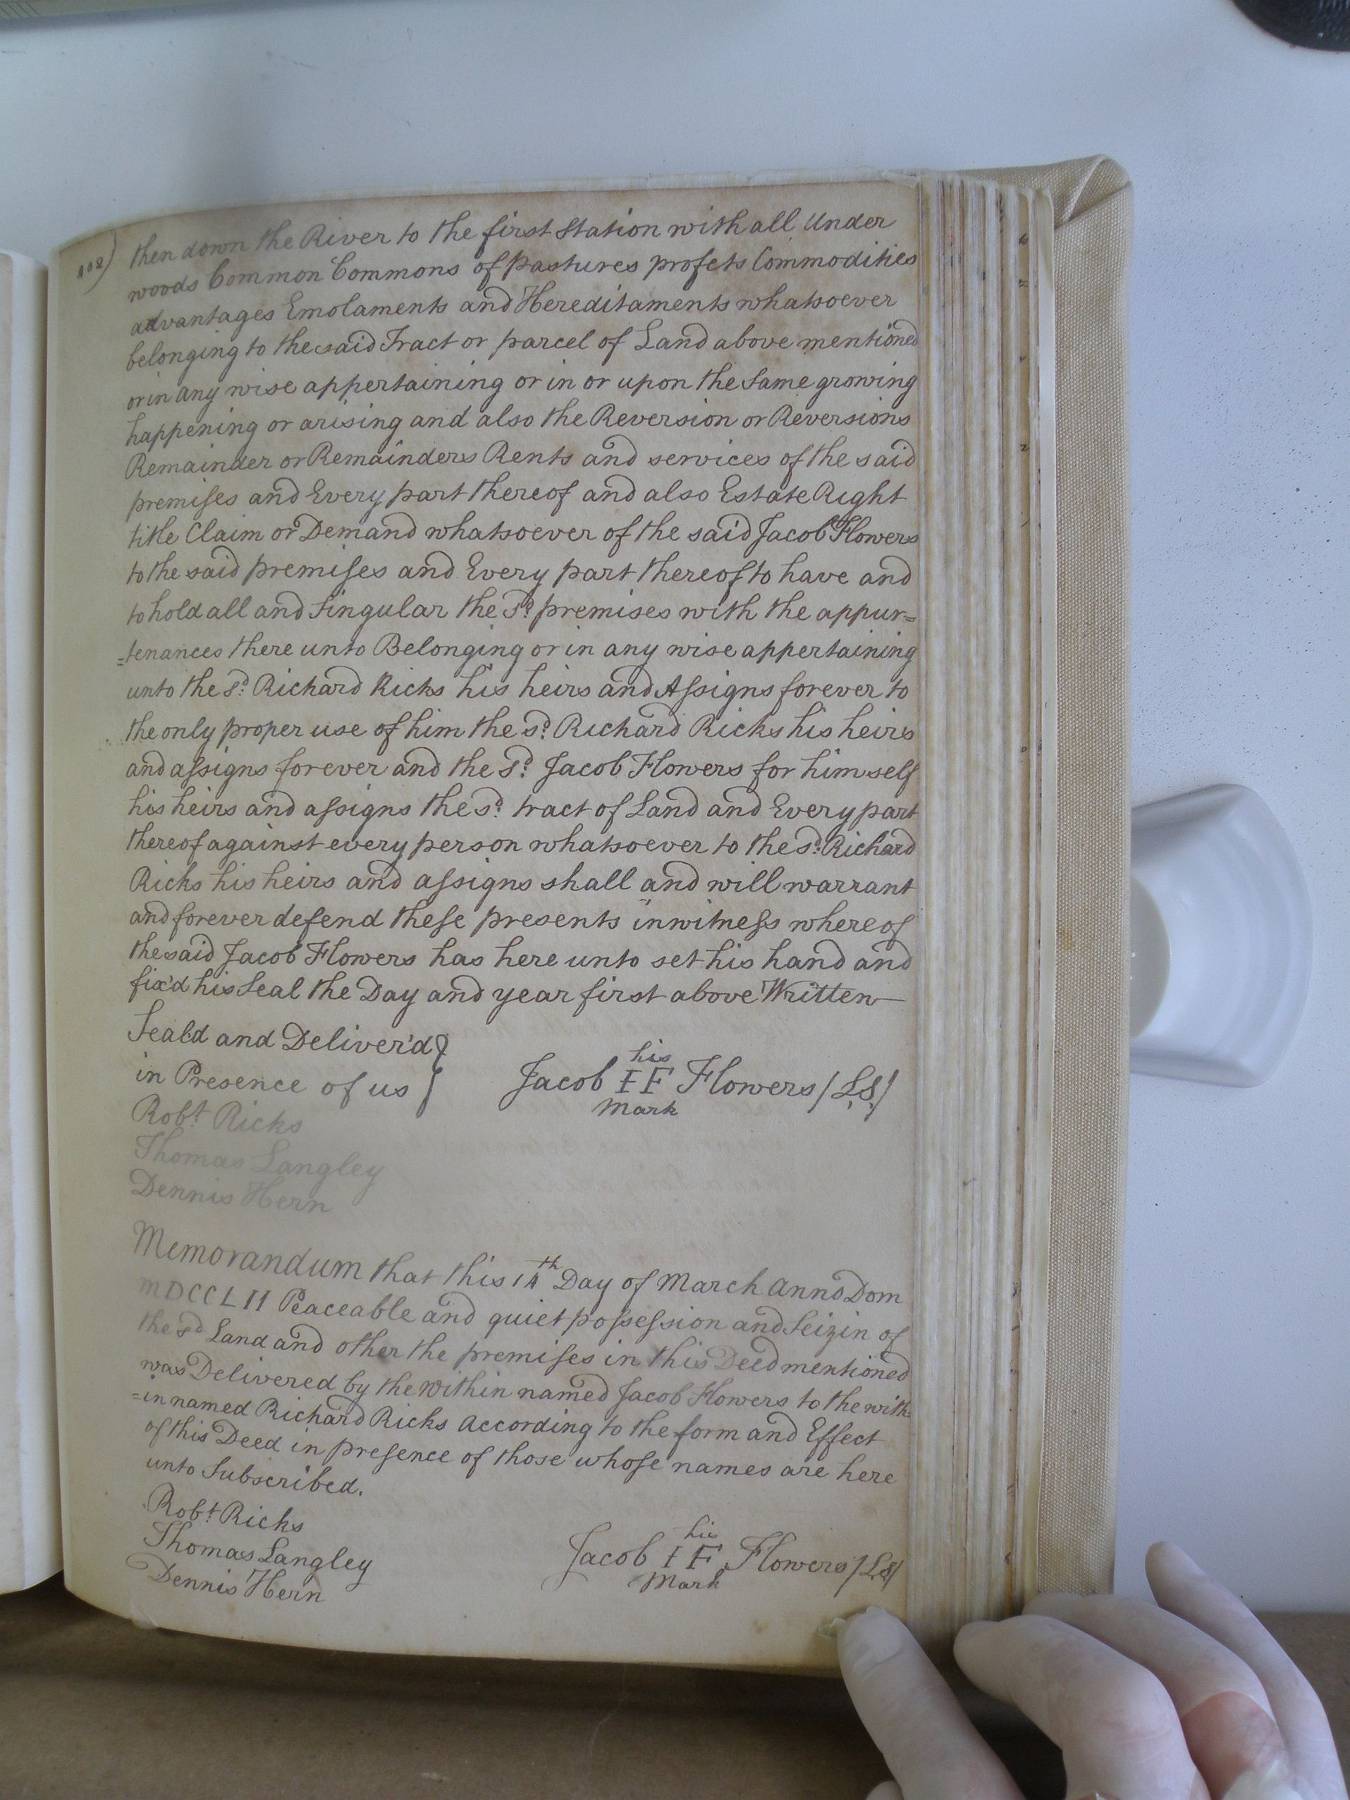 108)
then down the River to the first Station with all Under
woods Common Commons of pastures profets Commodities
advantages Emolaments and Hereditaments whatsoever
belonging to the said Tract or parcel of Land above mentioned
or in any wise appertaining or in or upon the Same growing
happening or arising and also the Reversion or Reversions
Remainder or Remainders Rents and services of the said
premises and Every part thereof and also Estate Right
title Claim or Demand whatsoever of the said Jacob Flowers
to the said premises and Every part thereof to have and
to hold all and Singular the Sd. premises with the appur=
=tenances there unto Belonging or in any wise appertaining
unto the Sd. Richard Ricks his heirs and Assigns forever to
the only proper use of him the sd. Richard Ricks his heirs
and assigns forever and the Sd. Jacob Flowers for himself
his heirs and assigns the sd. tract of Land and Every part
thereof against every person whatsoever to the sd. Richard
Ricks his heirs and assigns shall and will warrant
and forever defend these presents in witness where of
the said Jacob Flowers has here unto set his hand and
fix'd his Seal the Day and year first above Written
Seal'd and Deliver'd }
in Presence of us }
his
Jacob I F Flowers /L.S./
Mark
Robt. Ricks
Thomas Langley
Dennis Hern
Memorandum that this 14th Day of March Anno Dom
MDCCLII Peaceable and quiet possession and Seizin of
the sd Land and other the premises in this Deed mentioned
was Delivered by the within named Jacob Flowers to the with
=in named Richard Ricks According to the form and Effect
of this Deed in presence of those whose names are here
unto Subscribed.
Robt Ricks
Thomas Langley
Dennis Hern
his
Jacob I F Flowers /LS/
Mark